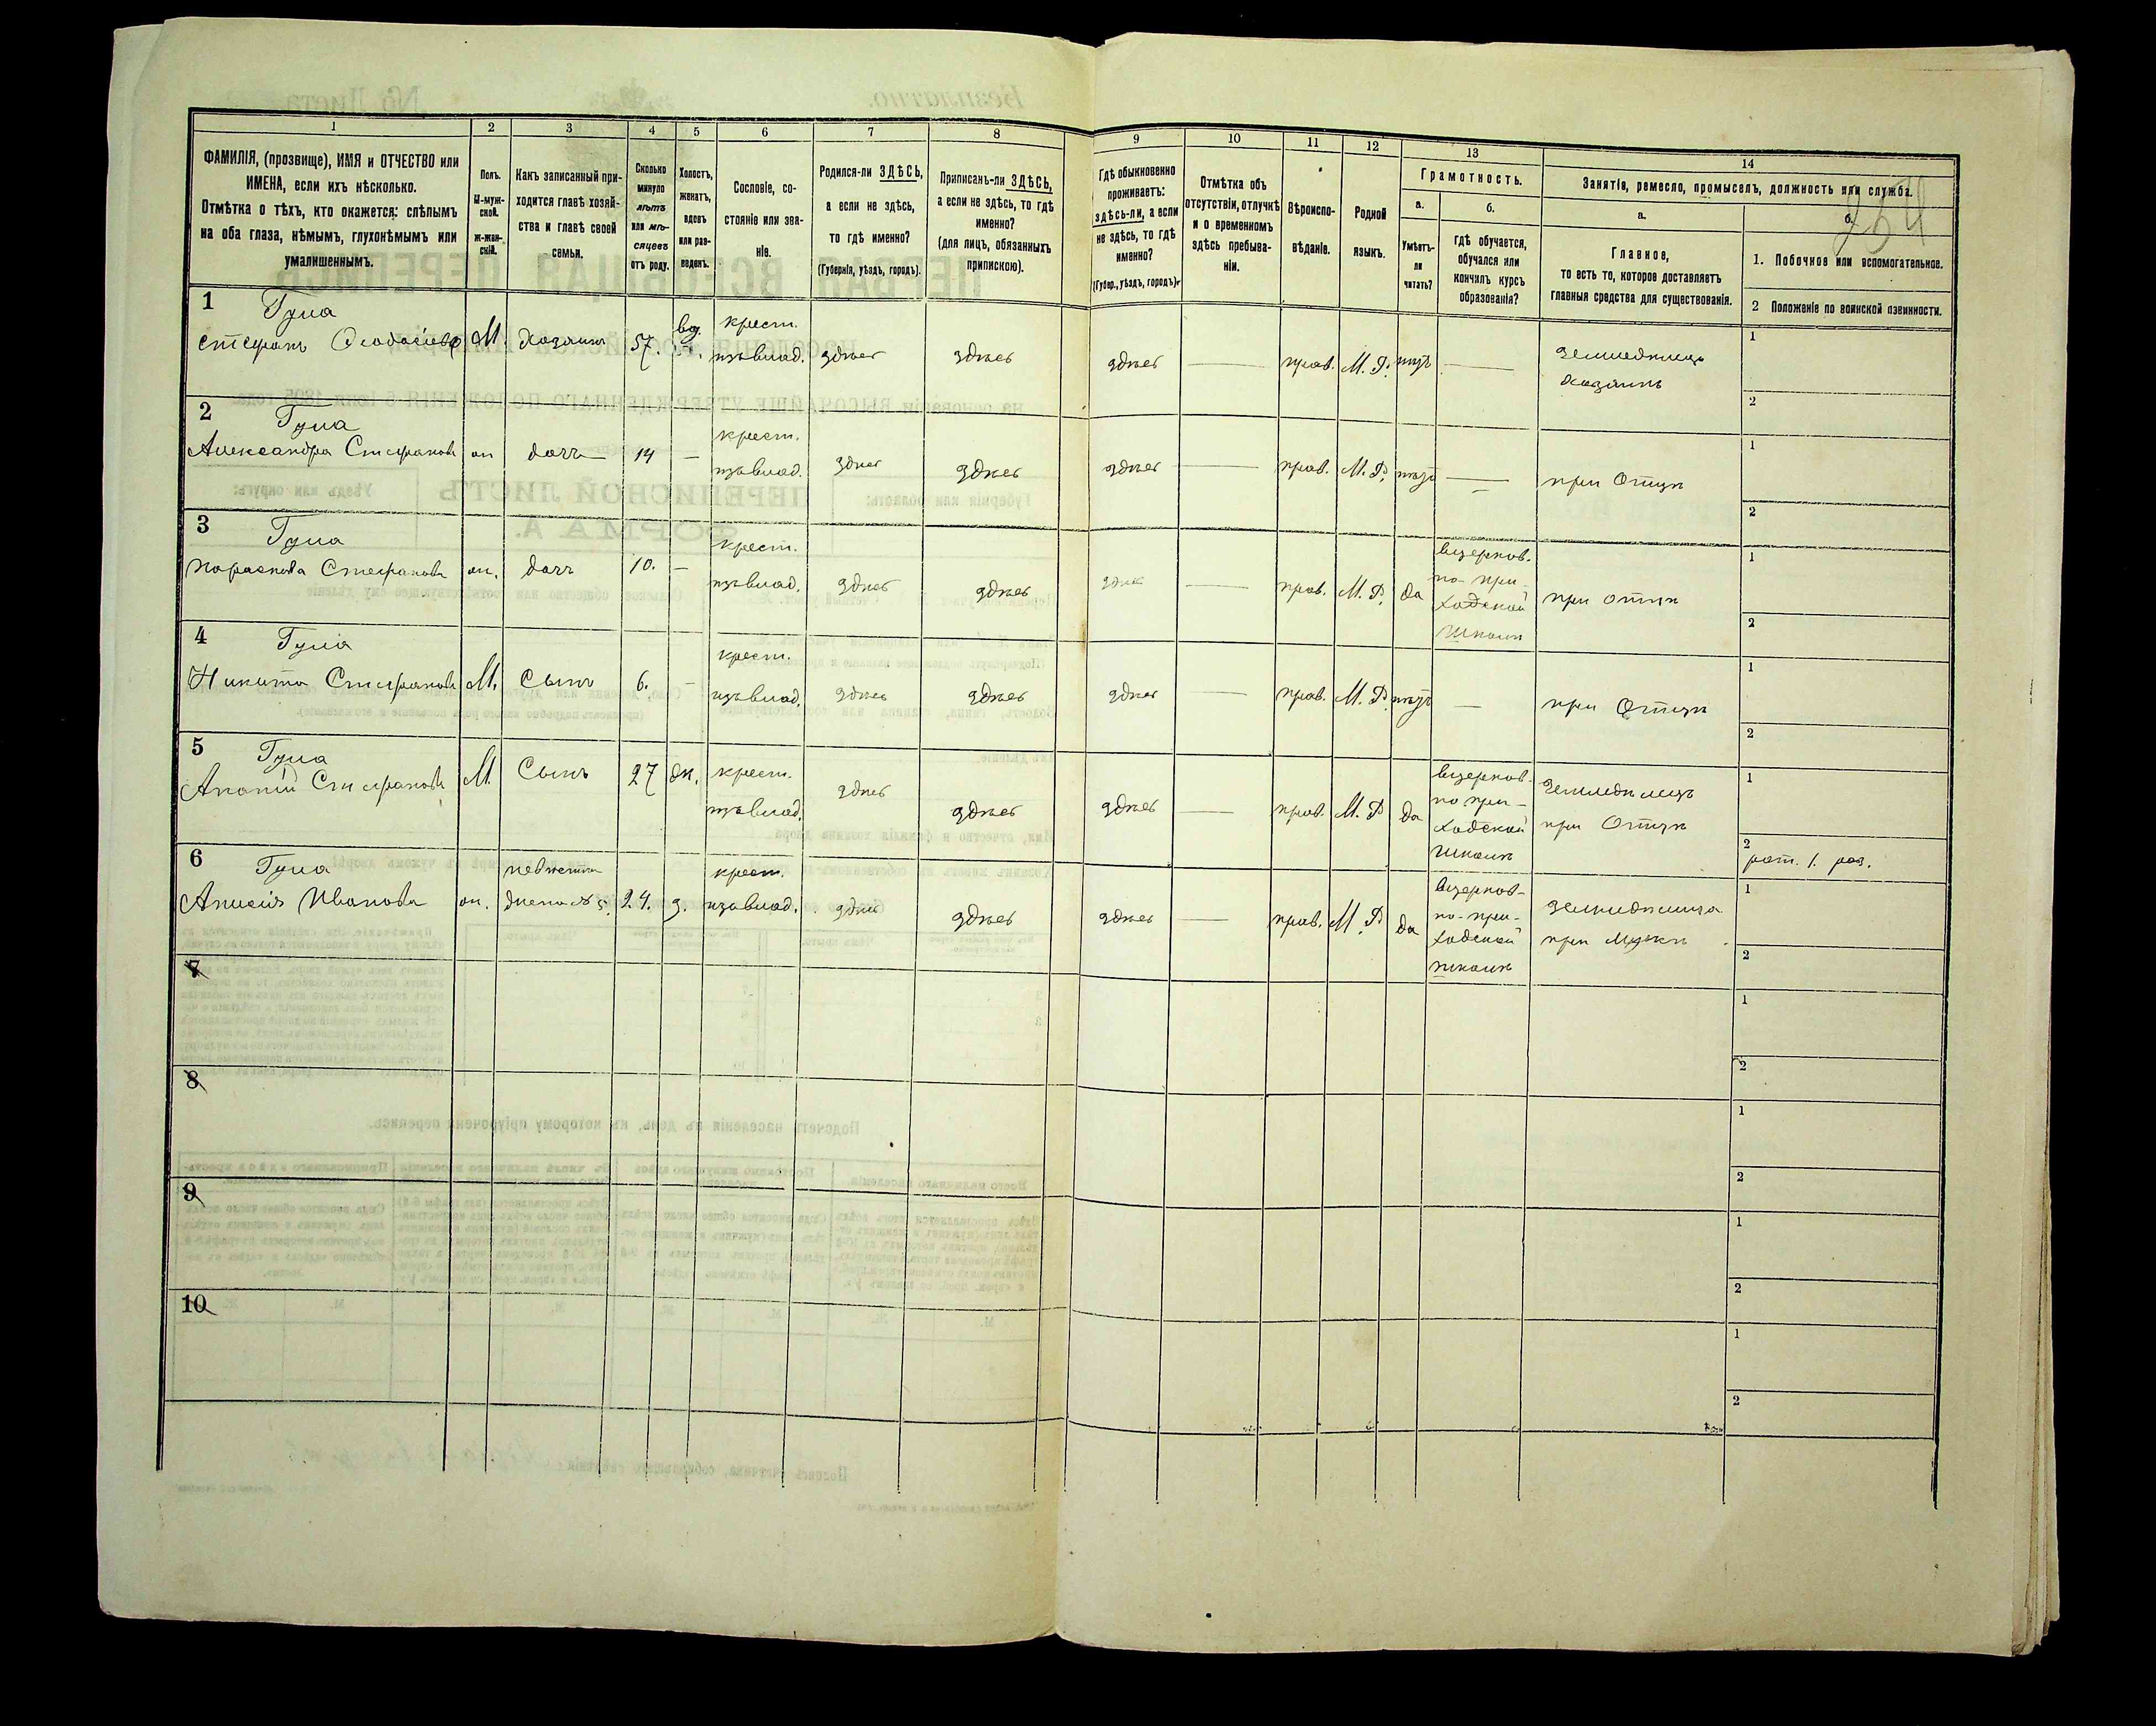 1 2 3 4 5 6 7 8 9 10 11 12 13 14
ФАМИЛІЯ, (прозвище), ИМЯ и ОТЧЕСТВО или
ИМЕНА, если ихъ нѣсколько.
Отмѣтка о тѣхъ, кто окажется: слѣпымъ
на оба глаза, нѣмымъ, глухонѣмымъ или
умалишеннымъ.
Полъ.
М-муж-
ской.
ж-жен-
скій.
Какъ записанный при-
ходится главѣ хозяй-
ства и главѣ своей
семьи.
Сколько
минуло
лѣтъ
или мѣ-
сяцевъ
отъ роду.
Холостъ,
женатъ,
вдовъ
или раз-
веденъ.
Сословіе, со-
стояніе или зва-
ніе.
Родился-ли ЗДѢСЬ,
а если не здѣсь,
то гдѣ именно?
(Губернія, уѣздъ, городъ).
Приписанъ-ли ЗДѢСЬ,
а если не здѣсь, то гдѣ
именно?
(для лицъ, обязанныхъ
припискою).
Гдѣ обыкновенно
проживаетъ:
здѣсь-ли, а если
не здѣсь, то гдѣ
именно?
(Губер., уѣздъ, городъ).
Отмѣтка объ
отсутствіи, отлучкѣ
и о временномъ
здѣсь пребыва-
ніи.
Вѣроиспо-
вѣданіе.
Родной
языкъ.
Грамотность.
а.
Умѣетъ-
ли
читать?
б.
гдѣ обучается,
обучался или
кончилъ курсъ
образованія?
Занятіе, ремесло, промыселъ, должность или служба.
а.
Главное,
то есть то, которое доставляетъ
главныя средства для существованія.
б.
1. Побочное или вспомогательное.
2 Положеніе по воинской повинности.
1
Гула
Стефанъ М. Хозяинъ 57. вд. крест. изъ влад. здѣсь здѣсь здѣсь — прав. М. Р. нѣтъ — Земледѣлецъ
хозяинъ
1
2
2
Гула
Александра Стефанова дочь 14 — крест. изъ влад. здѣсь здѣсь здѣсь — прав. М. Р. нѣтъ — при Отцѣ
1
2
3
Гула
Стефанова дочь 10. — крест. изъ влад. здѣсь здѣсь здѣсь — прав. М. Р. да въ церков-
но-при-
ходской
школѣ
при отцѣ
1
2
4
Гула
Никита Стефановъ М. Сынъ 6. — крест. изъ влад. здѣсь здѣсь здѣсь — прав. М. Р. нѣтъ — при Отцѣ
1
2
5
Гула
Ананій Стефановъ М. Сынъ 27 жн. крест. изъ влад. здѣсь здѣсь здѣсь — прав. М. Р. да въ церков-
но при-
ходской
школѣ
Земледѣлецъ
при Отцѣ
1
2
рат. 1. раз.
6
Гула
Иванова невѣстка жена № 5. 24. з. крест. изъ влад. здѣсь здѣсь здѣсь — прав. М. Р. да въ церков-
но-при-
ходской
школѣ
Земледѣлица
при Мужѣ
1
2
7
1
2
8
1
2
9
1
2
10
1
2